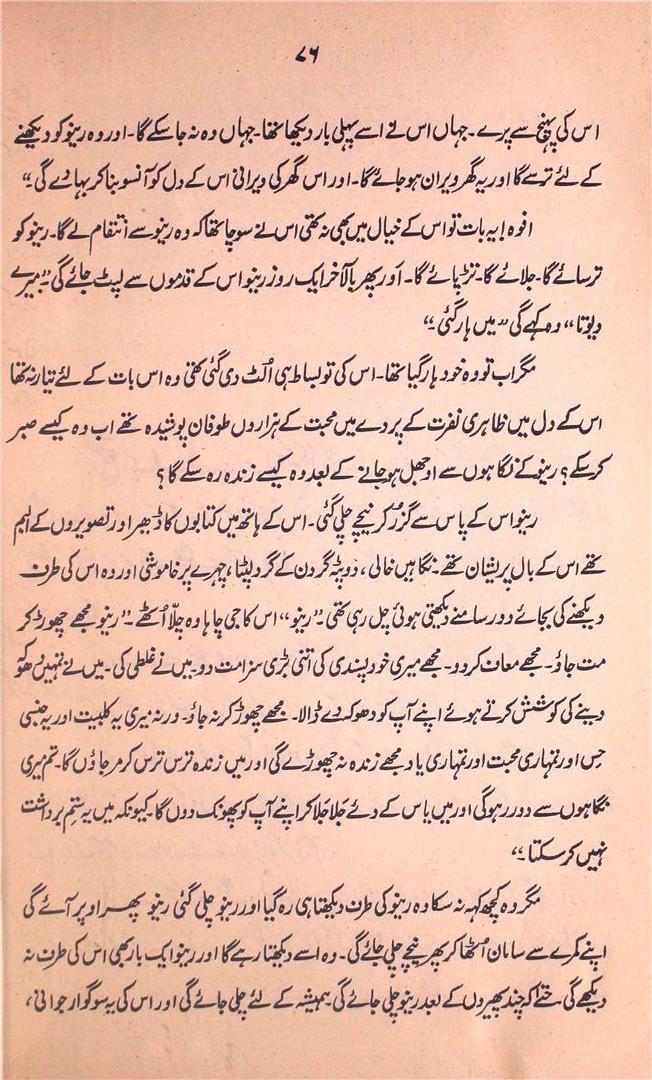 ۷۶
اس کی پہنچ سے پرے۔ جہاں اس نے اسے پہلی بار دیکھا تھا۔ جہاں وہ نہ جا سکے گا۔ اور وہ رینو کو دیکھنے
کے لئے ترسے گا اور یہ گھر ویران ہو جائے گا۔ اور اس گھر کی ویرانی اس کے دل کو آنسو بنا کر بہا دے گی۔“
افوہ! یہ بات تو اس کے خیال میں بھی نہ تھی اس نے سوچا تھا کہ وہ رینو سے انتقام لے گا۔ رینو کو
ترسائے گا۔ جلائے گا۔ تڑپائے گا۔ اور پھر بالآخر ایک روز رینو اس کے قدموں سے لپٹ جائے گی۔ ”میرے
دیوتا“ وہ کہے گی ”میں ہار گئی۔“
مگر اب تو وہ خود ہار گیا تھا۔ اس کی تو بساط ہی اُلٹ دی گئی تھی وہ اس بات کے لئے تیار نہ تھا
اس کے دل میں ظاہری نفرت کے پردے میں محبت کے ہزاروں طوفان پوشیدہ تھے اب وہ کیسے صبر
کر سکے؟ رینو کے نگاہوں سے اوجھل ہو جانے کے بعد وہ کیسے زندہ رہ سکے گا؟
رینو اس کے پاس سے گزر کر نیچے چلی گئی۔ اس کے ہاتھ میں کتابوں کا ڈھیر اور تصویروں کے البم
تھے اس کے بال پریشان تھے۔ نگاہیں خالی، دوپٹہ گردن کے گرد لپٹا، چہرے پر خاموشی اور وہ اس کی طرف
دیکھنے کی بجائے دور سامنے دیکھتی ہوئی چل رہی تھی۔ ”رینو“ اس کا جی چاہا وہ چلّا اُٹھے۔ ”رینو مجھے چھوڑ کر
مت جاؤ۔ مجھے معاف کر دو۔ مجھے میری خود پسندی کی اتنی بڑی سزا مت دو۔ میں نے غلطی کی۔ میں نے تمہیں دھوکہ
دینے کی کوشش کرتے ہوئے اپنے آپ کو دھوکہ دے ڈالا۔ مجھے چھوڑ کر نہ جاؤ۔ ورنہ میری یہ کلبیت اور یہ جنسی
حِس اور تمہاری محبت اور تمہاری یاد مجھے زندہ نہ چھوڑے گی اور میں زندہ ترس ترس کر مر جاؤں گا۔ تم میری
نگاہوں سے دور رہو گی اور میں یاس کے دئے جَلا جَلا کر اپنے آپ کو پھونک دوں گا۔ کیونکہ میں یہ ستم برداشت
نہیں کر سکتا۔“
مگر وہ کچھ کہہ نہ سکا وہ رینو کی طرف دیکھتا ہی رہ گیا اور رینو چلی گئی رینو پھر اوپر آئے گی
اپنے کمرے سے سامان اُٹھا کر پھر نیچے چلی جائے گی۔ وہ اسے دیکھتا رہے گا اور رینو ایک بار بھی اس کی طرف نہ
دیکھے گی حتٰے کہ چند پھیروں کے بعد رینو چلی جائے گی۔ ہمیشہ کے لئے چلی جائے گی اور اس کی یہ سوگوار جوانی،